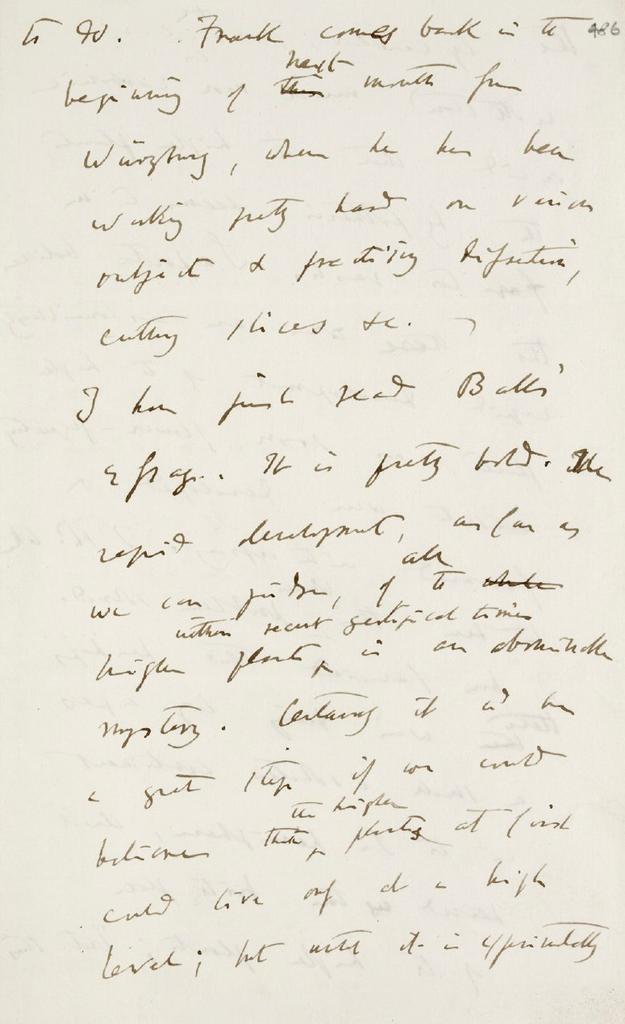 to do. Frank comes back in the 486
beginning of this next month from
Würzburg, where he has been
working pretty hard on various
subjects & practising dissection,
cutting slices &c. —
I have just read Ball's
Essay. It is pretty bold. The
rapid development, as far as
we can judge, of all the whole
higher plants within recent geological times is an abominable
mystery. Certainly it wd be
a great step if we could
believe that the higher plants at first
could live only at a high
level; but until it is experimentally